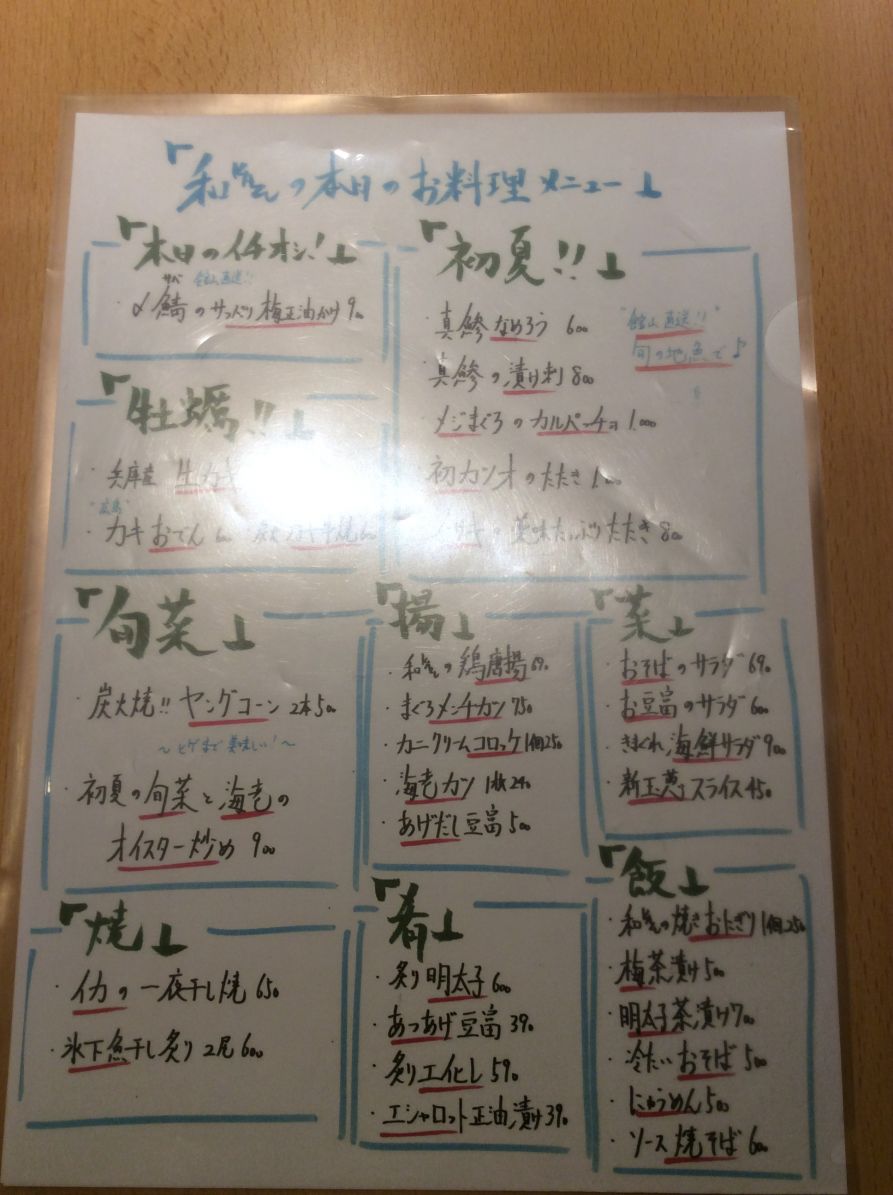 「和さんの本日のお料理メニュー」
「本日のイチオシ!」
サバ 館山直送!!
・〆鯖のサッパリ梅正油かけ 900
「初夏!!」
・真鯵なめろう 600
"館山直送!!"
旬の地魚で♪
・真鯵の漬け刺 800
・メジまぐろのカルパッチョ 1.000
・初カツオのたたき 1.000
薬味たっぷりたたき 800
「牡蠣!!」
・兵庫産 生カキ
"広島"
・カキおでん
「旬菜」
・炭火焼!! ヤングコーン 2本500
~ヒゲまで美味しい!~
・初夏の旬菜と海老の
オイスター炒め 900
「揚」
・和さんの鶏唐揚 690
・まぐろメンチカツ 750
・カニクリームコロッケ 1個250
・海老カツ 1枚240
・あげだし豆富 500
「菜」
・おそばのサラダ 690
・お豆富のサラダ 600
・きまぐれ海鮮サラダ 900
・新玉葱スライス 450
「焼」
・イカの一夜干し焼 650
・氷下魚干し炙り 2尾 600
「肴」
・炙り明太子 600
・あつあげ豆富 390
・炙りエイヒレ 590
・エシャロット正油漬け 390
「飯」
・和さんの焼きおにぎり 1個250
・梅茶漬け 500
・明太子茶漬け 700
・冷たいおそば 500
・にゅうめん 500
・ソース焼そば 600